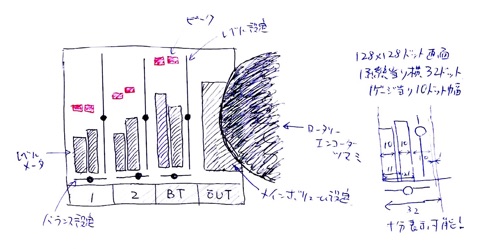 ピーク
レベル設定
128×128ドット画面
1系統当り横32ドット
1ゲージ当り10ドット幅
レベル
メータ
ロータリー
エンコーダ
ツマミ
バランス設定
1 2 BT OUT
メインボリューム設定
10 10
11 21
32
十分表示可能!